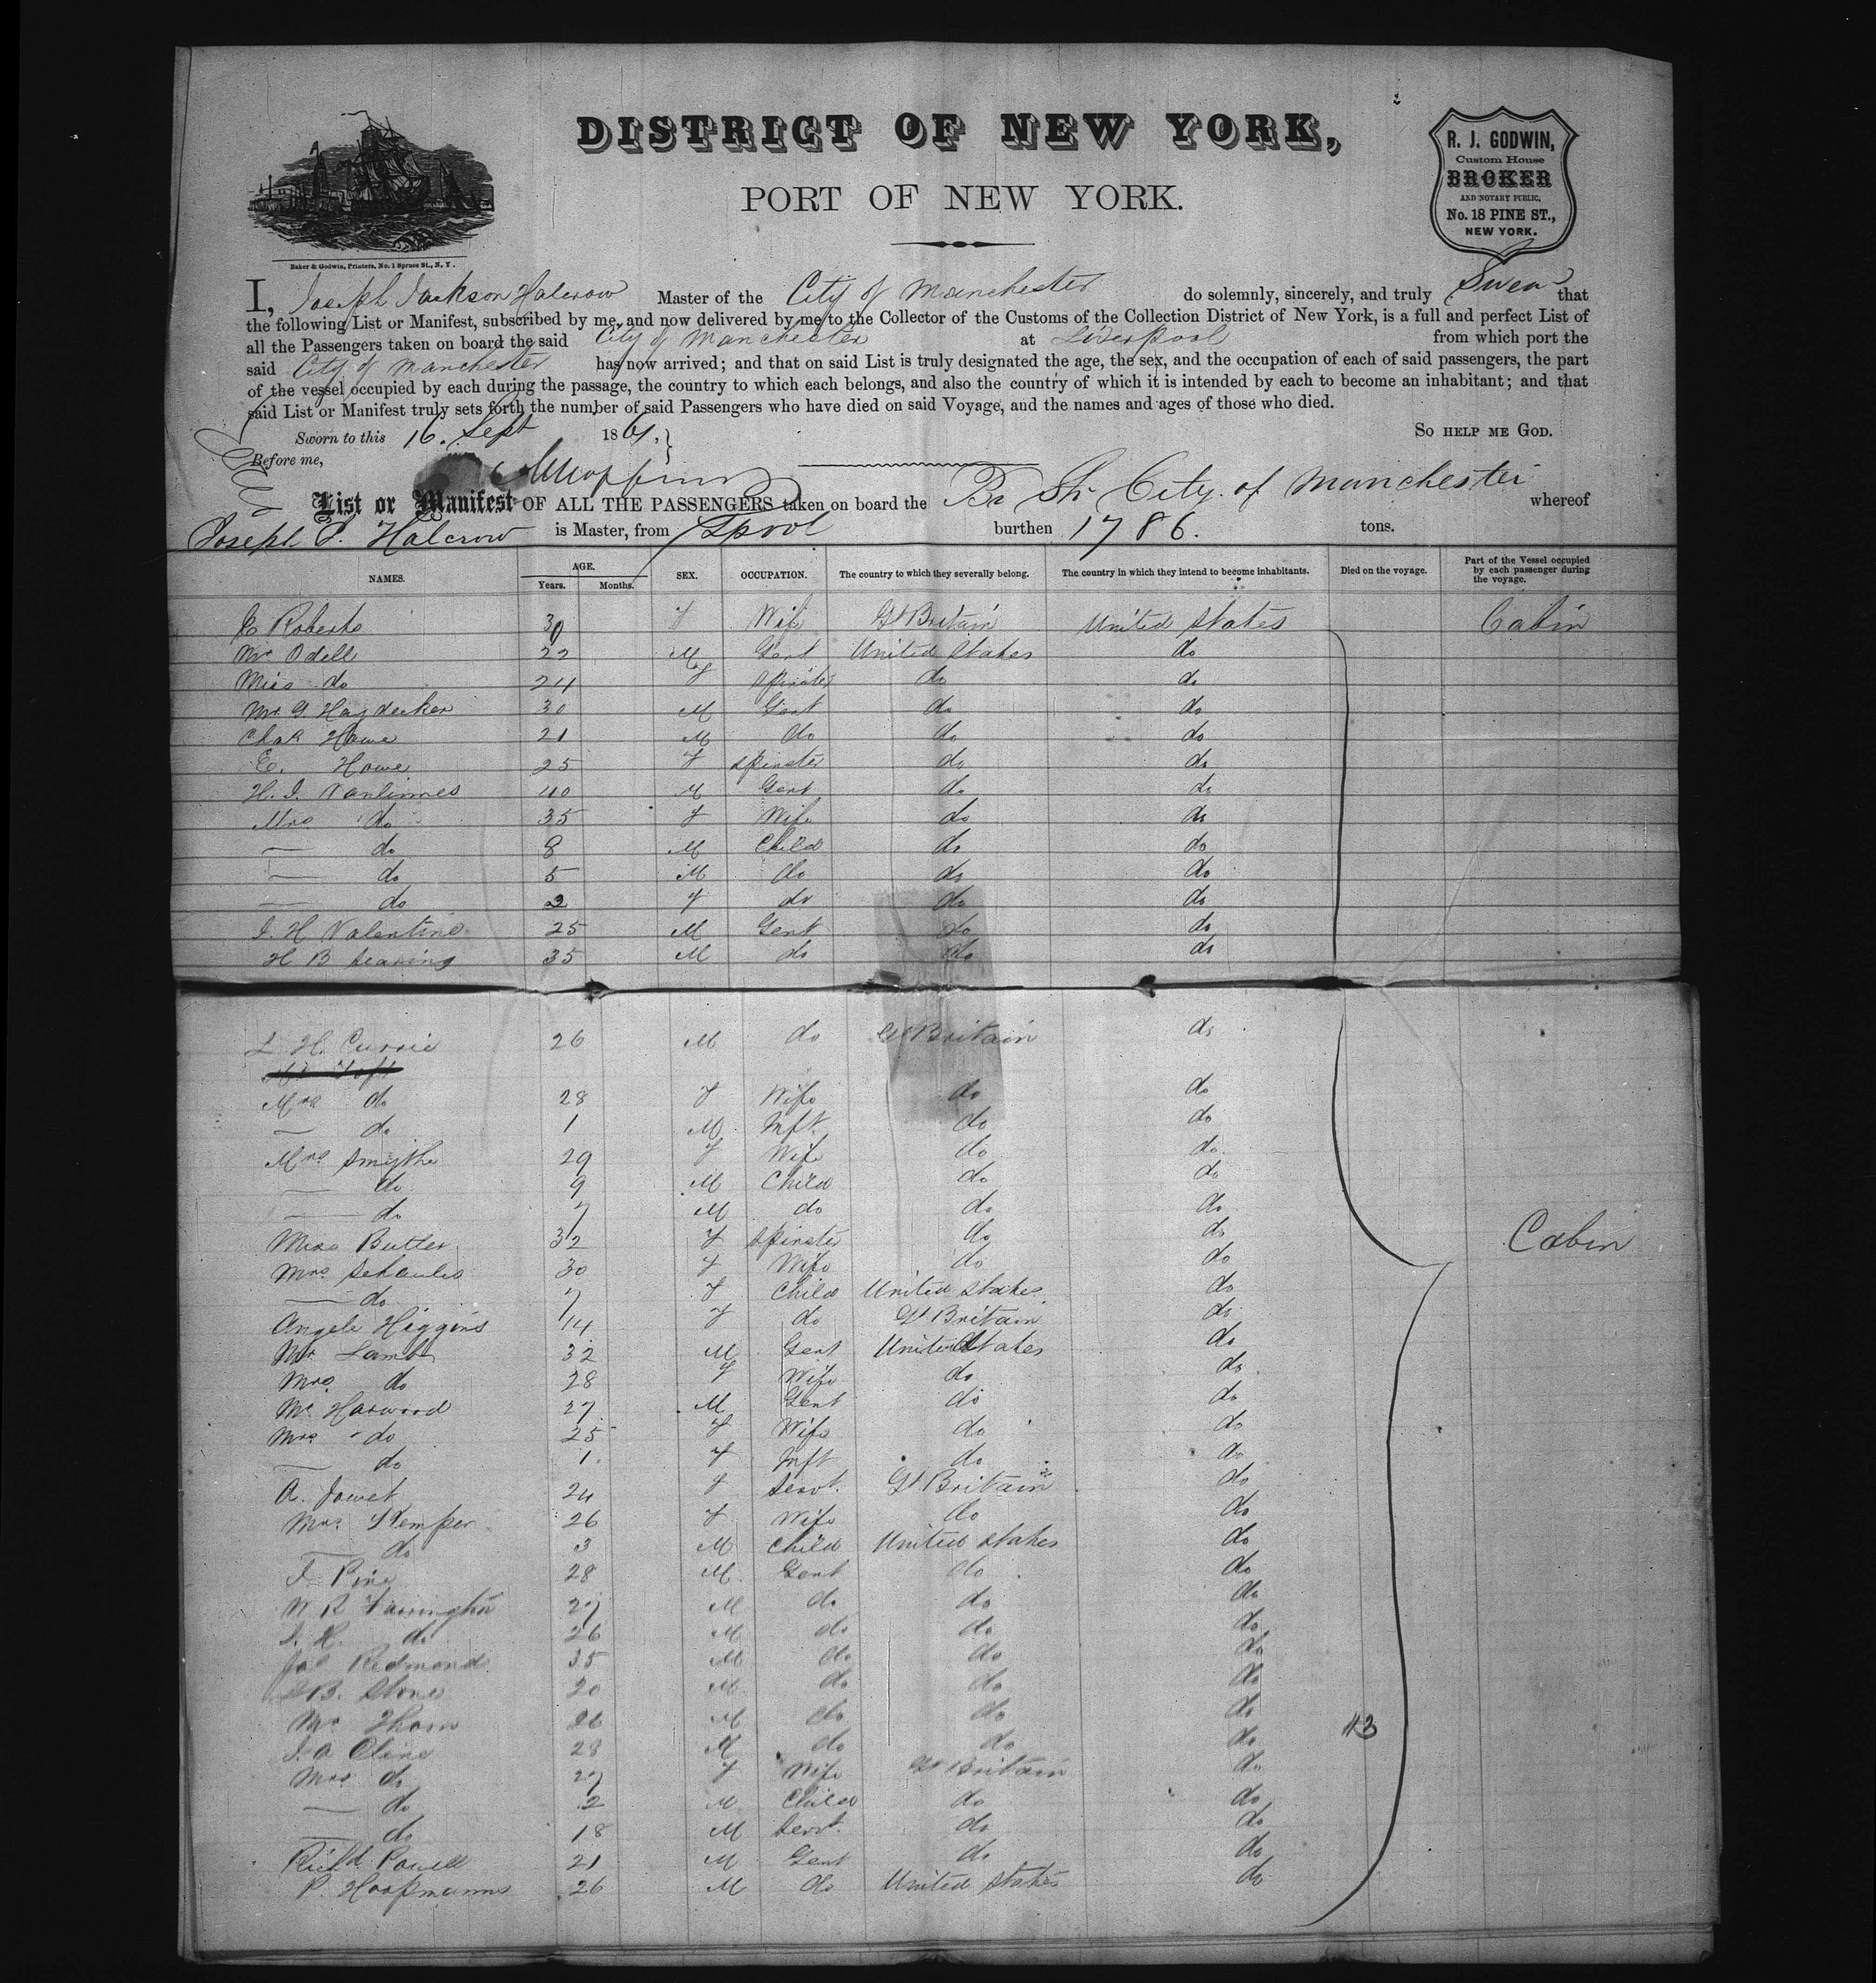 DISTRICT OF NEW YORK,
PORT OF NEW YORK.
R. J. GODWIN,
Custom House
BROKER
AND NOTARY PUBLIC,
No. 18 PINE ST.,
NEW YORK.
Baker & Godwin, Printers, No. 1 Spruce St., N. Y.
I, Joseph Jackson Halcrow Master of the City of Manchester do solemnly, sincerely, and truly Swear that
the following List or Manifest, subscribed by me, and now delivered by me to the Collector of the Customs of the Collection District of New York, is a full and perfect List of
all the Passengers taken on board the said City of Manchester at Liverpool from which port the
said City of Manchester has now arrived; and that on said List is truly designated the age, the sex, and the occupation of each of said passengers, the part
of the vessel occupied by each during the passage, the country to which each belongs, and also the country of which it is intended by each to become an inhabitant; and that
said List or Manifest truly sets forth the number of said Passengers who have died on said Voyage, and the names and ages of those who died.
Sworn to this 16. Sept 1861. SO HELP ME GOD.
Before me,
List or Manifest OF ALL THE PASSENGERS taken on board the Br Str City of Manchester whereof
Joseph J. Halcrow is Master, from Lpool burthen 1786. tons.
NAMES. AGE. Years. Months. SEX. OCCUPATION. The country to which they severally belong. The country in which they intend to become inhabitants. Died on the voyage. Part of the Vessel occupied by each passenger during the voyage.
E Roberts 30 F Wife Gt Britain United States Cabin
Mr Odell 22 M Gent United States do
Miss do 24 F Spinster do do
Mr G Haydecker 30 M Gent do do
Chas Howe 21 M do do do
E. Howe 25 F Spinster do do
H. I. 40 M Gent do do
Mrs do 35 F Wife do do
— do 8 M Child do do
— do 5 M do do do
— do 2 F do do do
J. H Valentine 25 M Gent do do
H B Searing 35 M do do do
L. H. Currie 26 M do Gt Britain do
Mrs do 28 F Wife do do
— do 1 M Inft do do
Mrs Smythe 29 F Wife do do
— do 9 M Child do do
— do 7 M do do do
Miss Butler 32 F Spinster do do Cabin
Mrs 30 F Wife do do
— do 7 F Child United States do
Angele Higgins 14 F do Gt Britain do
Mr Lamb 32 M Gent United States do
Mrs do 28 F Wife do do
Mr Harwood 27 M Gent do do
Mrs do 25 F Wife do do
— do 1 F Inft do do
A. Jowet 24 F Servt. Gt Britain do
Mrs Kemper 26 F Wife do do
— do 3 M Child United States do
J. Pine 28 M Gent do do
W R Farrington 27 M do do do
J. H. do 26 M do do do
Jas Redmond 35 M do do do
B. Stone 20 M do do do
Mr Thorn 26 M do do do 43
J. A Cline 28 M do do do
Mrs do 27 F Wife Gt Britain do
— do 2 M Child do do
— do 18 M Servt. do do
Richd Powell 21 M Gent do do
P. Hoopmanns 26 M do United States do